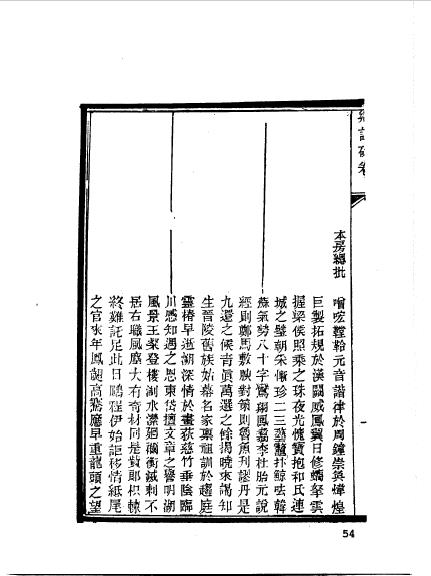 本房總批
噌吰鞺鞳元音諧律於周鐘崇奐煒煌
巨製拓規於漢闕威鳳翼日修蠋拏雲
握梁侯照乘之珠夜光愧寶抱和氏連
城之璧朝采慚珍二三藝鼇抃鯨呿韓
蘇氣勢八十字鸞翔鳳翥李杜胎元說
經則鄭馬敷腴對策則魯魚刊謬丹是
九還之候青真萬選之餘揭曉來謁知
生晉陵舊族姑幕名家稟祖訓於趨庭
靈椿早逝溯深情於畫荻慈竹垂陰臨
川感知遇之恩東岱擅文章之譽明湖
風景王粲登樓淛水漂廻禰衡緘刺不
居右職風塵大有奇材同是貲郎枳棘
終難託足此日鵬程伊始詎移情紙尾
之官來年鳳翽高騫應早重龍頭之望
54